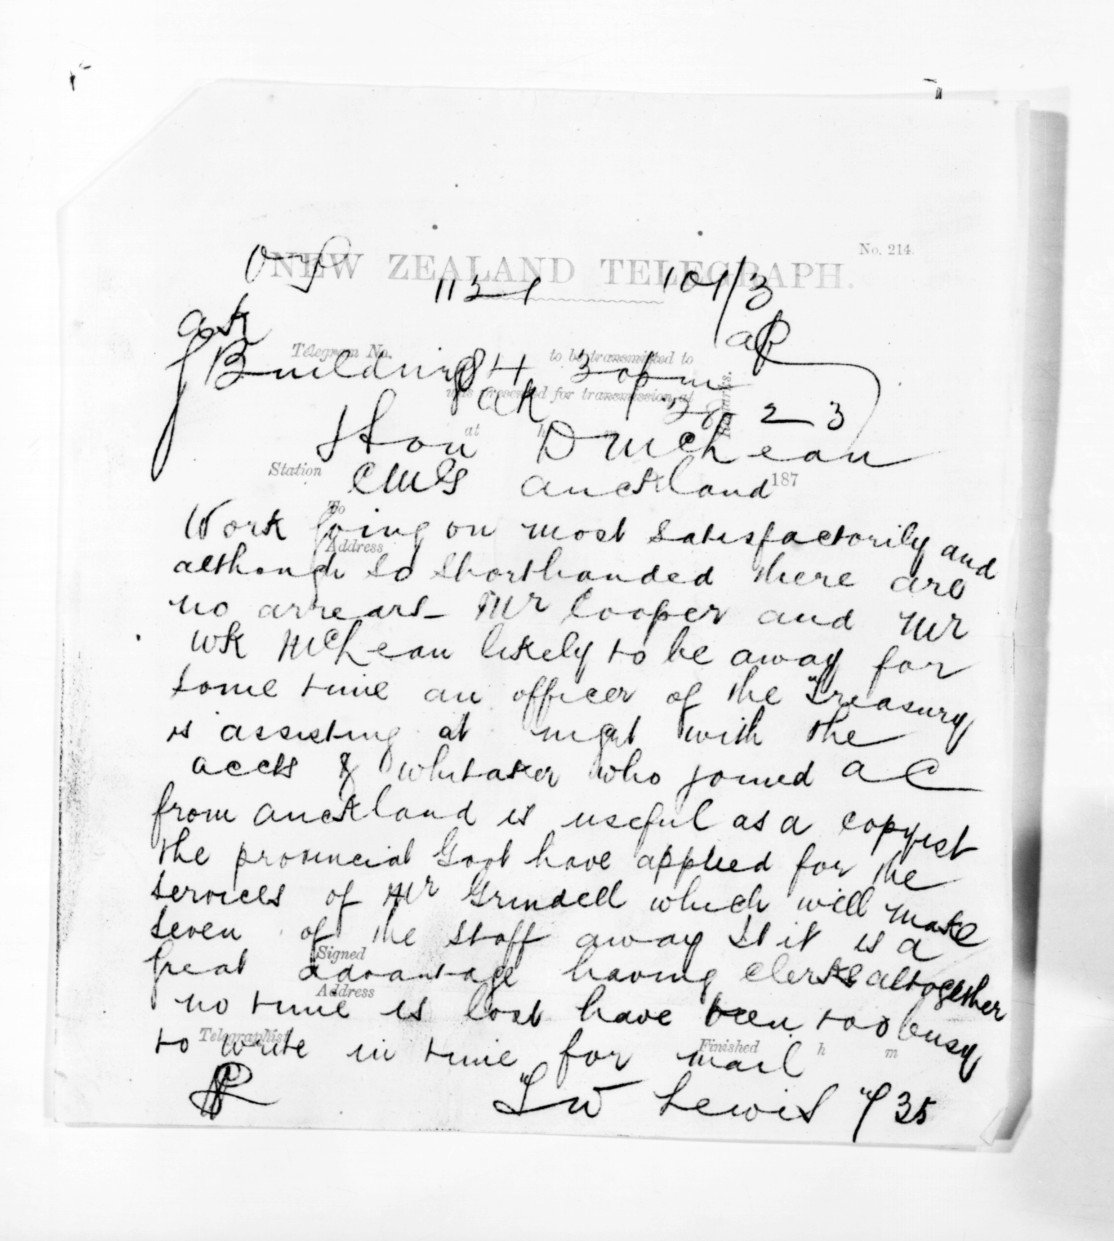 No. 214.
NEW ZEALAND TELEGRAPH.
1121 101/3
Telegram No. to be transmitted to
Buildings 4 30 pm
was presented for transmission at
Ak 23
Hon D McLean
at h
Remarks.
Station CMGS Auckland 187
To
Work going on most satisfactorily and
Address
although so shorthanded there are
no arrears Mr Cooper and Mr
WK McLean likely to be away for
some time an officer of the Treasury
is assisting at night with the
accts & Whitaker who joined AC
from Auckland is useful as a copyist
the provincial Govt have applied for the
services of Mr Grindell which will make
seven of the staff away it is a
Signed
great advantage having clerks altogether
Address
no time is lost have been too busy
Telegraphist Finished h m
to write in time for mail
"HW Lewis" 35